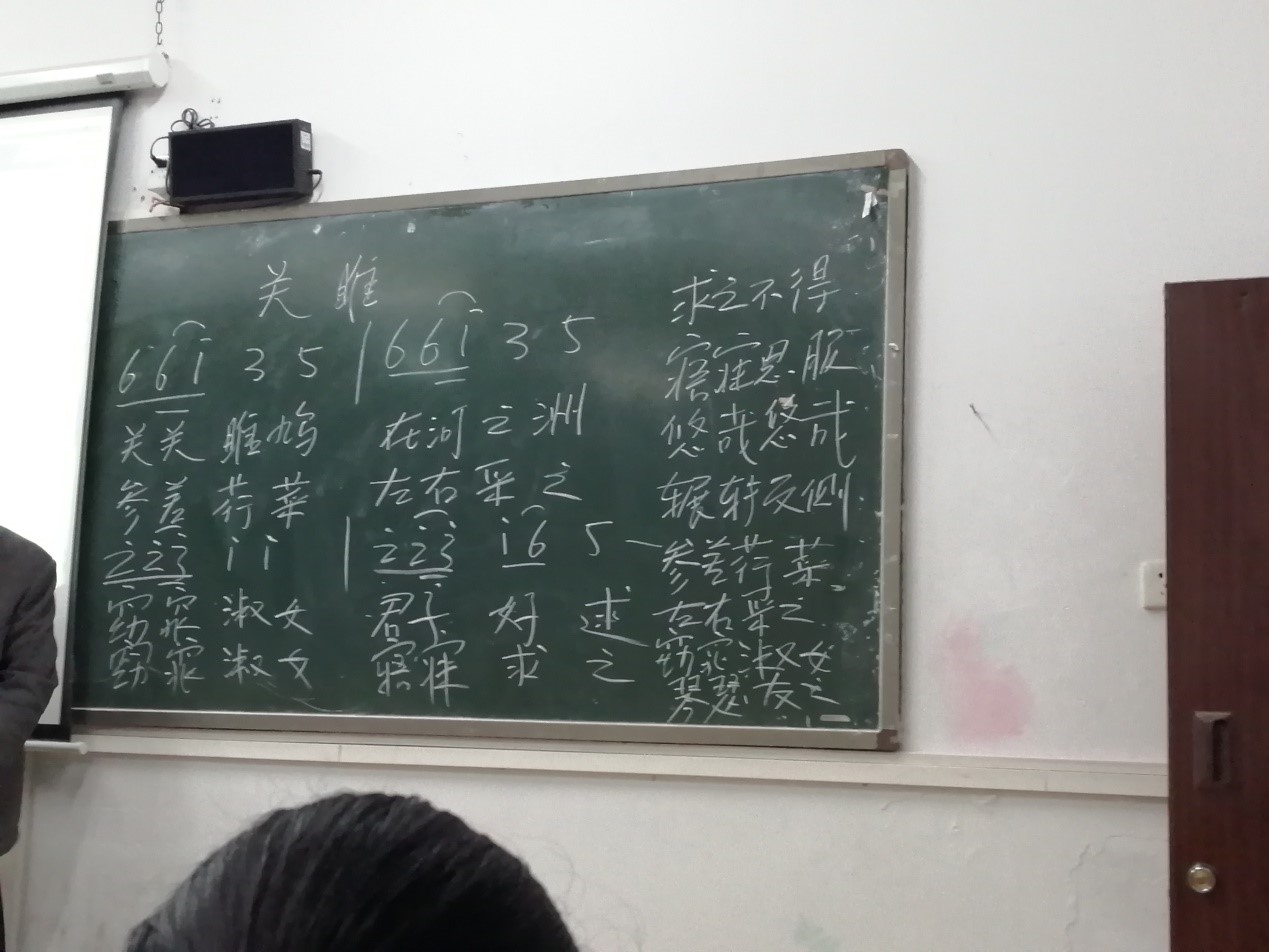 关雎
6 6 i 3 5 | 6 6 i 3 5
关关雎鸠 在河之洲
参差荇菜 左右采之
2̇ 2̇ 3̇ i i | 2̇ 2̇ 3̇ i 6 5 —
窈窕淑女 君子好逑
窈窕淑女 寤寐求之
求之不得
寤寐思服
悠哉悠哉
辗转反侧
参差荇菜
左右采之
窈窕淑女
琴瑟友之